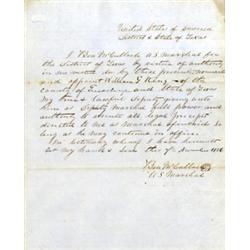 United States of America
District & State of Texas
I Ben McCulloch U.S. Marshal for
the District of Texas by virtue of authority
in me vested do by these presents nominate
and appoint William G. King of the
county of and State of Texas
my true & lawful Deputy giving unto
him as Deputy Marshal full power and
authority to execute all legal precepts
directed to me as Marshal aforesaid so
long as he may continue in office.
In testimony whereof I have hereunto
set my hand & seal this 7th
Ben McCulloch
U S Marshal